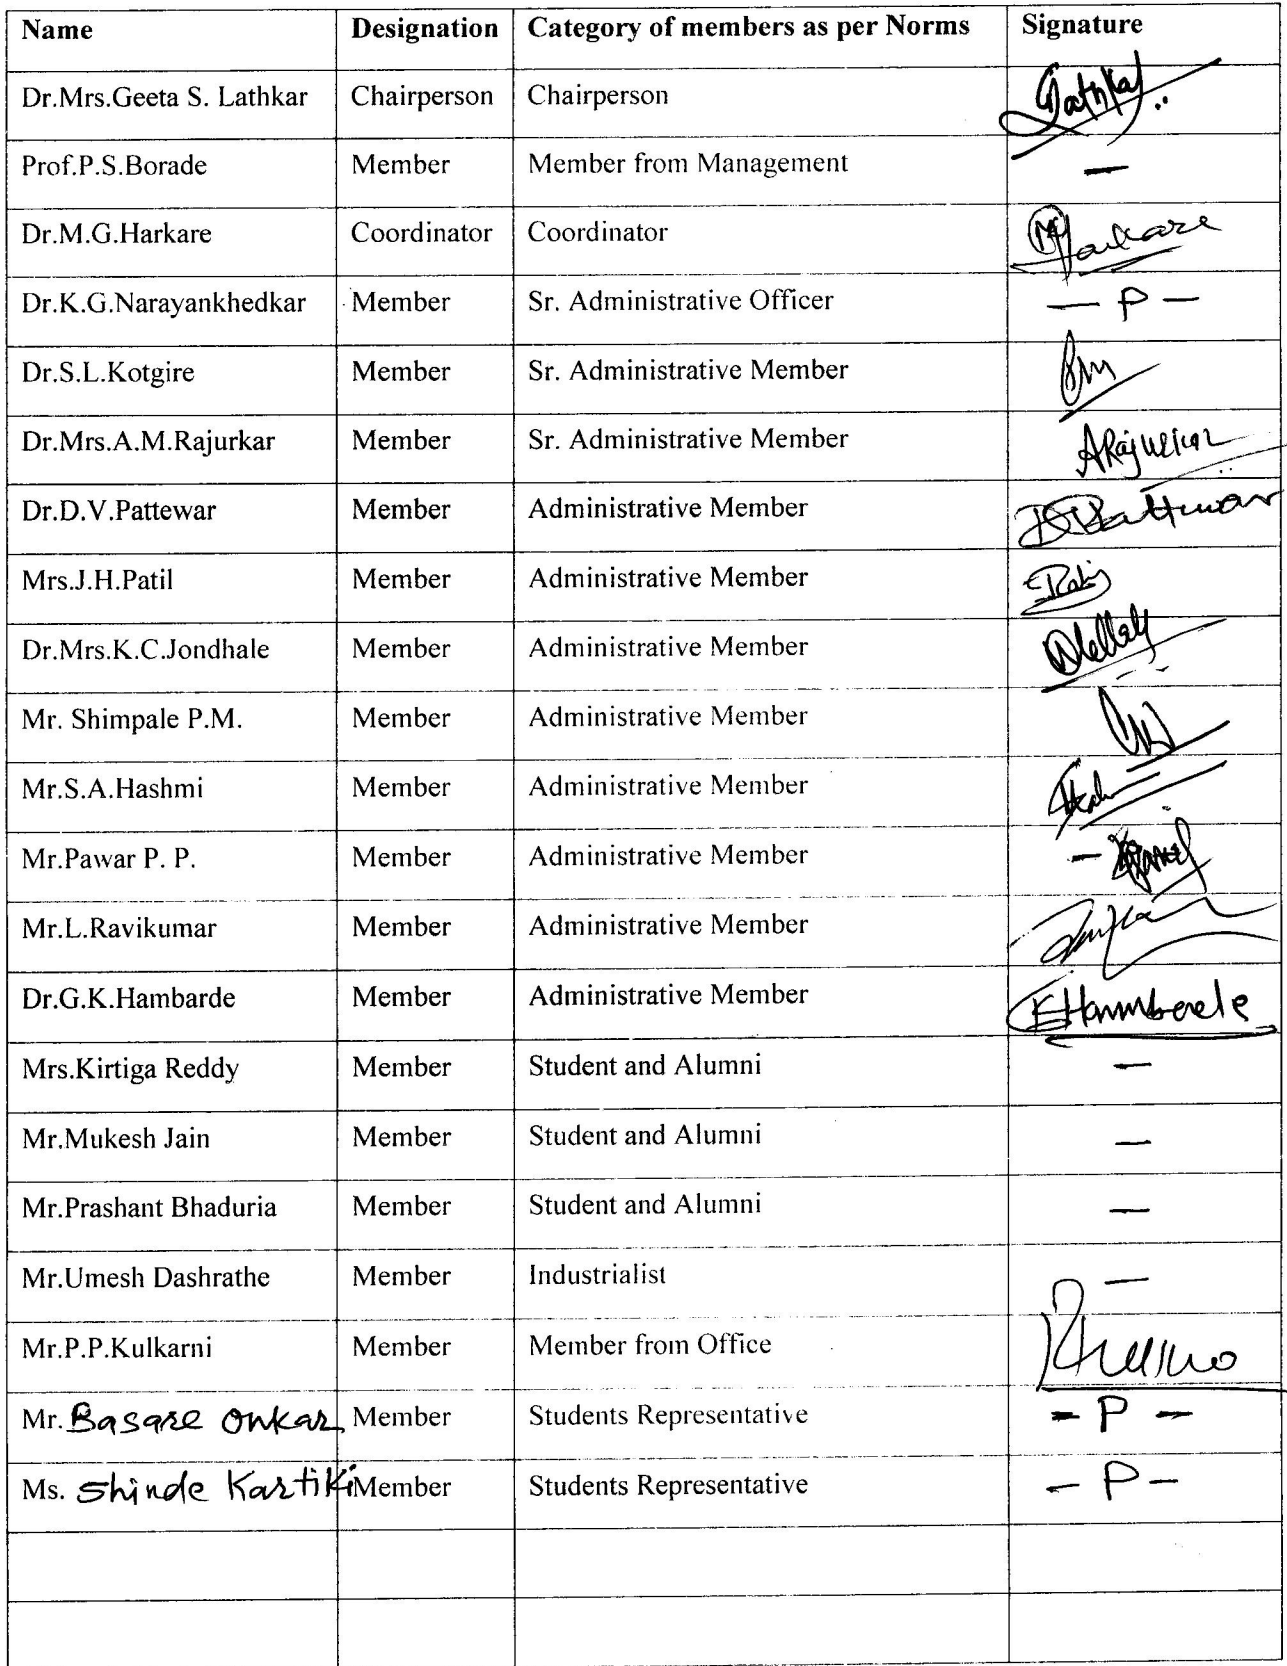 Name Designation Category of members as per Norms Signature
Dr.Mrs.Geeta S. Lathkar Chairperson Chairperson Lathkar
Prof.P.S.Borade Member Member from Management —
Dr.M.G.Harkare Coordinator Coordinator Harkare
Dr.K.G.Narayankhedkar Member Sr. Administrative Officer — P —
Dr.S.L.Kotgire Member Sr. Administrative Member
Dr.Mrs.A.M.Rajurkar Member Sr. Administrative Member ARajurkar
Dr.D.V.Pattewar Member Administrative Member
Mrs.J.H.Patil Member Administrative Member
Dr.Mrs.K.C.Jondhale Member Administrative Member
Mr. Shimpale P.M. Member Administrative Member
Mr.S.A.Hashmi Member Administrative Member
Mr.Pawar P. P. Member Administrative Member
Mr.L.Ravikumar Member Administrative Member
Dr.G.K.Hambarde Member Administrative Member
Mrs.Kirtiga Reddy Member Student and Alumni —
Mr.Mukesh Jain Member Student and Alumni —
Mr.Prashant Bhaduria Member Student and Alumni —
Mr.Umesh Dashrathe Member Industrialist —
Mr.P.P.Kulkarni Member Member from Office
Mr. Basare Onkar Member Students Representative - P -
Ms. Shinde Kartiki Member Students Representative - P -